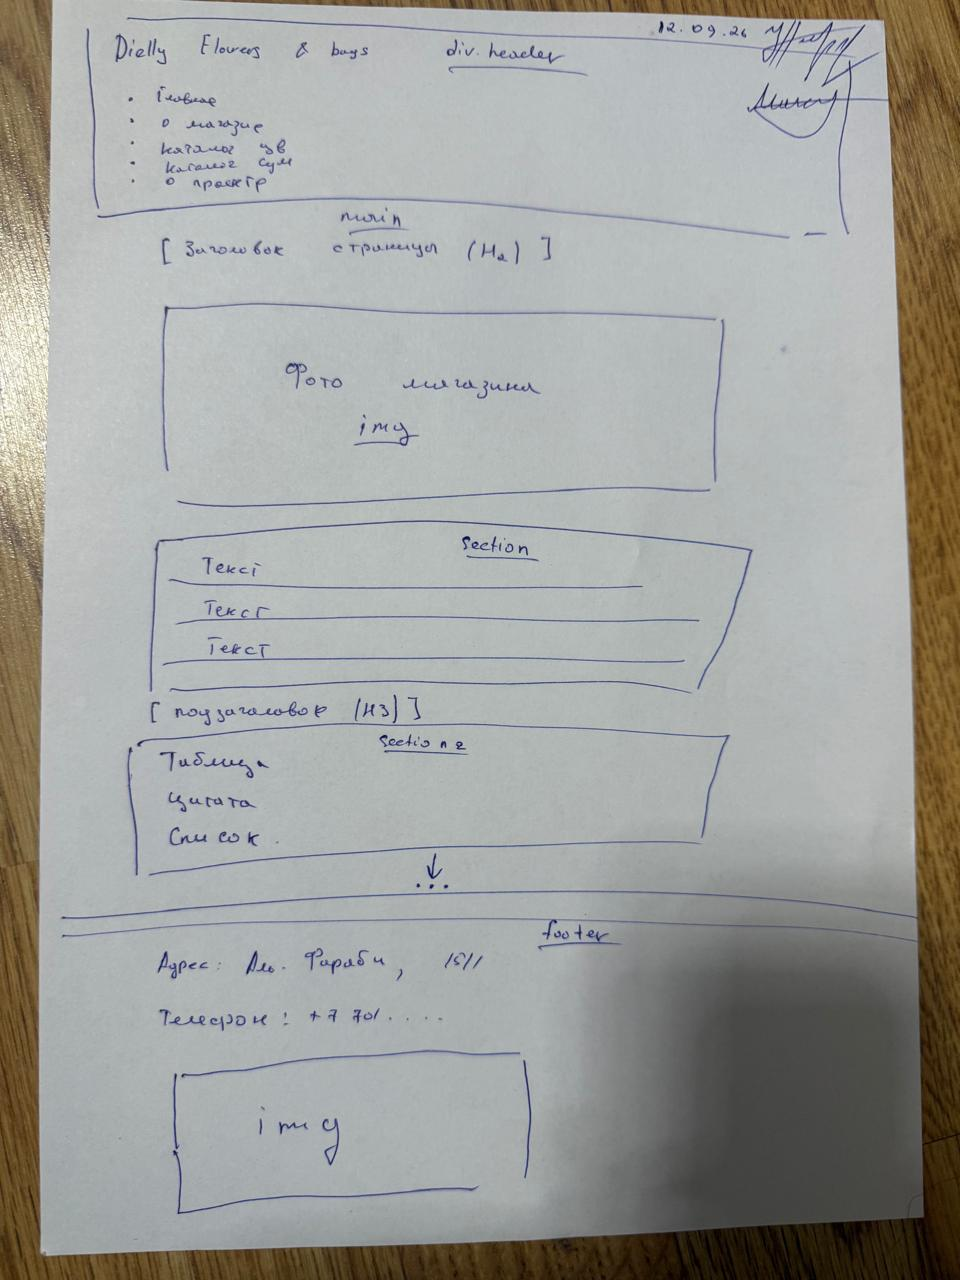 12.09.26
Dielly Flowers & bags div.header
• Главная
• о магазие
• каталог цв
• каталог сум
• о проектр
main
[ Заголовок страницы (H2) ]
Фото магазина
img
section
Текст
Текст
Текст
[ подзаголовок (H3) ]
section 2
Таблица
цитата
Список.
↓
...
footer
Адрес: Аль. Фараби, 15/1
Телефон: +7 701.....
img